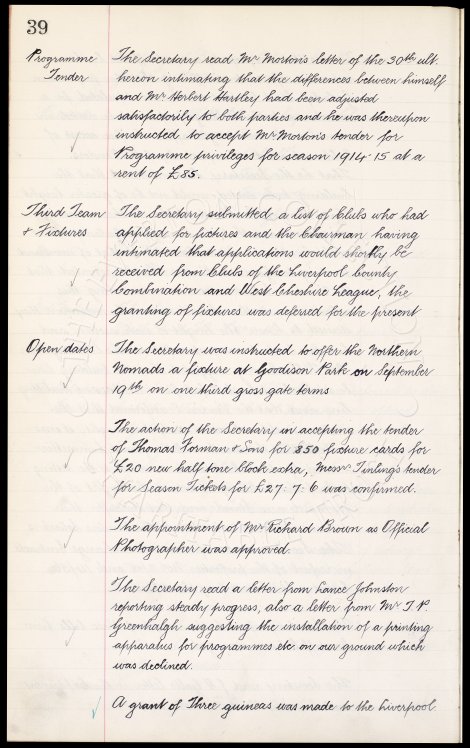 39
Programme
Tender
The Secretary read Mr Morton's letter of the 30th ult.
hereon intimating that the differences between himself
and Mr Herbert Hartley had been adjusted
satisfactorily to both parties and he was thereupon
instructed to accept Mr Morton's tender for
Programme privileges for season 1914-15 at a
rent of £85.
Third Team
+ Fixtures
The Secretary submitted a list of Clubs who had
applied for fixtures and the Chairman having
intimated that applications would shortly be
received from Clubs of the Liverpool County
Combination and West Cheshire League, the
granting of fixtures was deferred for the present
Open dates
The Secretary was instructed to offer the Northern
Nomads a fixture at Goodison Park on September
19th on one third gross gate terms
The action of the Secretary in accepting the tender
of Thomas Forman & Sons for 850 fixture cards for
£20 new half tone block extra, Messrs Tinling's tender
for Season Tickets for £27:7:6 was confirmed.
The appointment of Mr Richard Brown as Official
Photographer was approved.
The Secretary read a letter from Lance Johnston
reporting steady progress, also a letter from Mr
Greenhalgh suggesting the installation of a printing
apparatus for programmes etc on our ground which
was declined.
A grant of Three guineas was made to the Liverpool